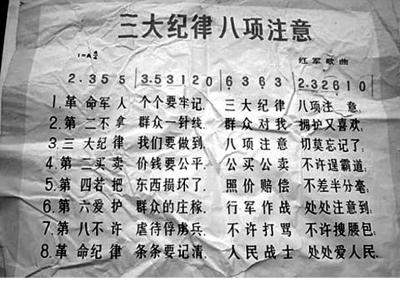 三大纪律八项注意
1=A 2/4
红军歌曲
2.35 5 | 3.531 2 0 | 6 3 6 3 | 2.326 1 0 |
1.革命军人 个个要牢记. 三大纪律 八项注意,
2.第二不拿 群众一针线. 群众对我 拥护又喜欢;
3.三大纪律 我们要做到. 八项注意 切莫忘记了.
4.第二买卖 价钱要公平. 公买公卖 不许逞霸道;
5.第四若把 东西损坏了. 照价赔偿 不差半分毫;
6.第六爱护 群众的庄稼. 行军作战 处处注意到;
7.第八不许 虐待俘虏兵. 不许打骂 不许搜腰包.
8.革命纪律 条条要记清. 人民战士 处处爱人民.